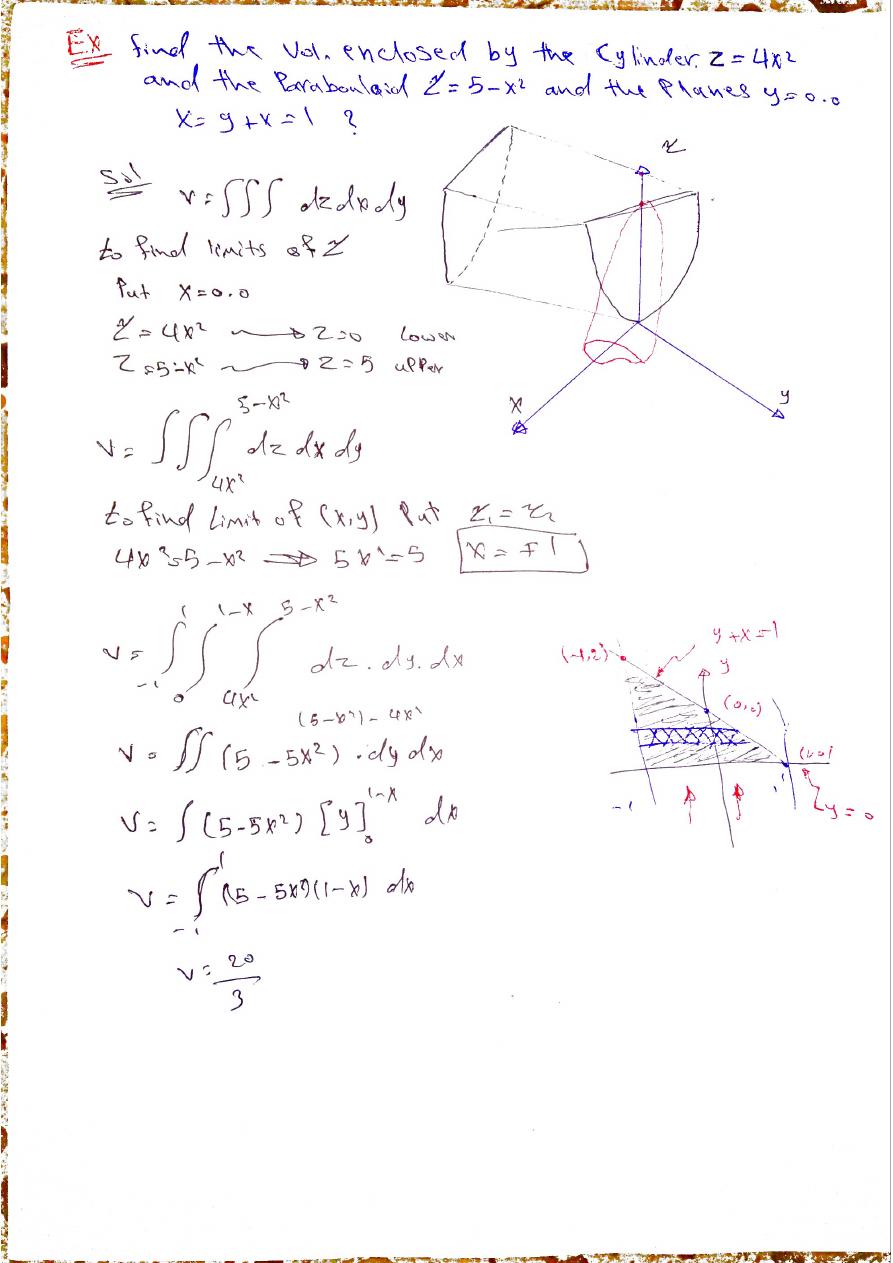 Ex find the Vol. enclosed by the Cylinder. Z = 4x²
and the Parabouloid Z = 5-x² and the Planes y=0.0
X= y+x=1 ?
Sol
v = ∫∫∫ dz dx dy
to find limits of Z
Put X=0.0
Z = 4x² → Z=0 Lower
Z = 5-x² → Z=5 upper
V = ∫∫∫_{4x²}^{5-x²} dz dx dy
to find Limit of (x,y) Put Z₁ = Z₂
4x² = 5-x² ⇒ 5x² = 5 X = ∓1
V = ∫_{-1}^{1} ∫_{0}^{1-x} ∫_{4x²}^{5-x²} dz . dy . dx
(5-x²) - 4x²
V = ∫∫ (5 - 5x²) . dy dx
V = ∫ (5-5x²) [y]_{0}^{1-x} dx
V = ∫_{-1}^{1} (5 - 5x²)(1-x) dx
V = 20/3
Z
X
y
y+x=1
(-1,2)
y
-1
1
y=0